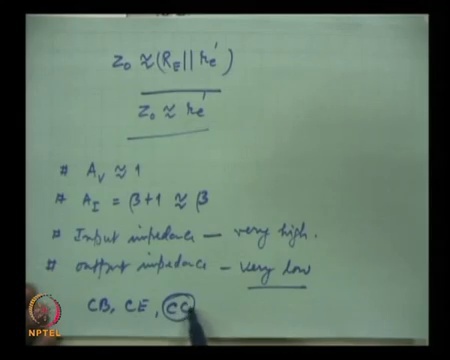 Z₀ ≈ (R_E || r_e')
Z₀ ≈ r_e'
# A_V ≈ 1
# A_I = β+1 ≈ β
# Input impedance — very high.
# output impedance – very low
CB, CE, CC
NPTEL